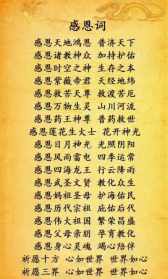 感恩词
感恩天地鸿恩 普济天下
感恩诸教神众 加持护佑
感恩时空之神 生存之本
感恩紫薇帝君 天经地纬
感恩救苦天尊 救渡苦厄
感恩万物生灵 山川河流
感恩药王神尊 普药救世
感恩莲花生大士 花开神光
感恩日月神光 光照阴阳
感恩风雨雷电 四季运常
感恩四海龙王 行云降雨
感恩武圣文贤 教化众生
感恩历代宗祖 庇佑后代
感恩伟大祖国 繁荣昌盛
感恩父母亲朋 孕育教化
感恩身心灵魂 竭心陪伴
祈愿十方 心如世界 世界如心
祈愿三界 心如世界 世界如心